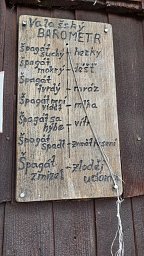 Valašský
BAROMETR
Špagát
suchý - hezky
Špagát
mokrý - déšť
Špagát
tvrdý - mráz
Špagát není
vidět - mlha
Špagát sa
hýbe - vítr
Špagát
spadl - zemětřesení
Špagát - zloděj
zmizel utaomy